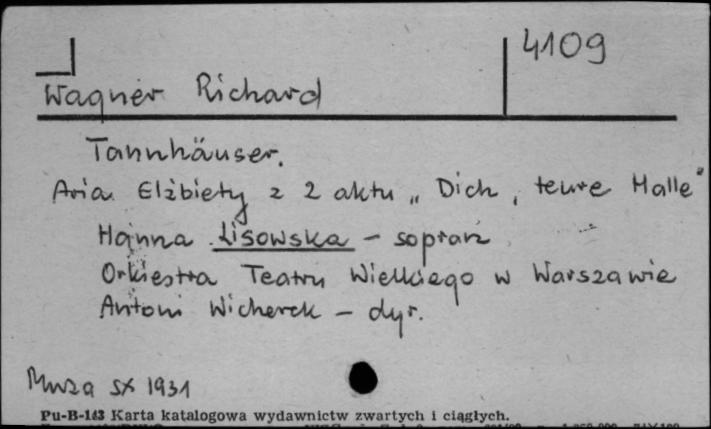 4109
Wagner Richard
Tannhäuser.
Aria Elżbiety z 2 aktu „Dich, teure Halle"
Hanna Lisowska – sopran
Orkiestra Teatru Wielkiego w Warszawie
Antoni Wicherek – dyr.
Muza SX 1931
Pu-B-143 Karta katalogowa wydawnictw zwartych i ciągłych.